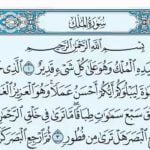 سُورَةُ المُلْكِ
بِسْمِ اللَّهِ الرَّحْمَٰنِ الرَّحِيمِ
يَدِهِ الْمُلْكُ وَهُوَ عَلَىٰ كُلِّ شَيْءٍ قَدِيرٌ ۝ الَّذِي
لِيَبْلُوَكُمْ أَيُّكُمْ أَحْسَنُ عَمَلًا وَهُوَ الْعَزِيزُ
سَبْعَ سَمَٰوَٰتٍ طِبَاقًا مَّا تَرَىٰ فِي خَلْقِ الرَّحْمَٰنِ
الْبَصَرَ هَلْ تَرَىٰ مِن فُطُورٍ ۝ ثُمَّ ارْجِعِ الْبَصَرَ